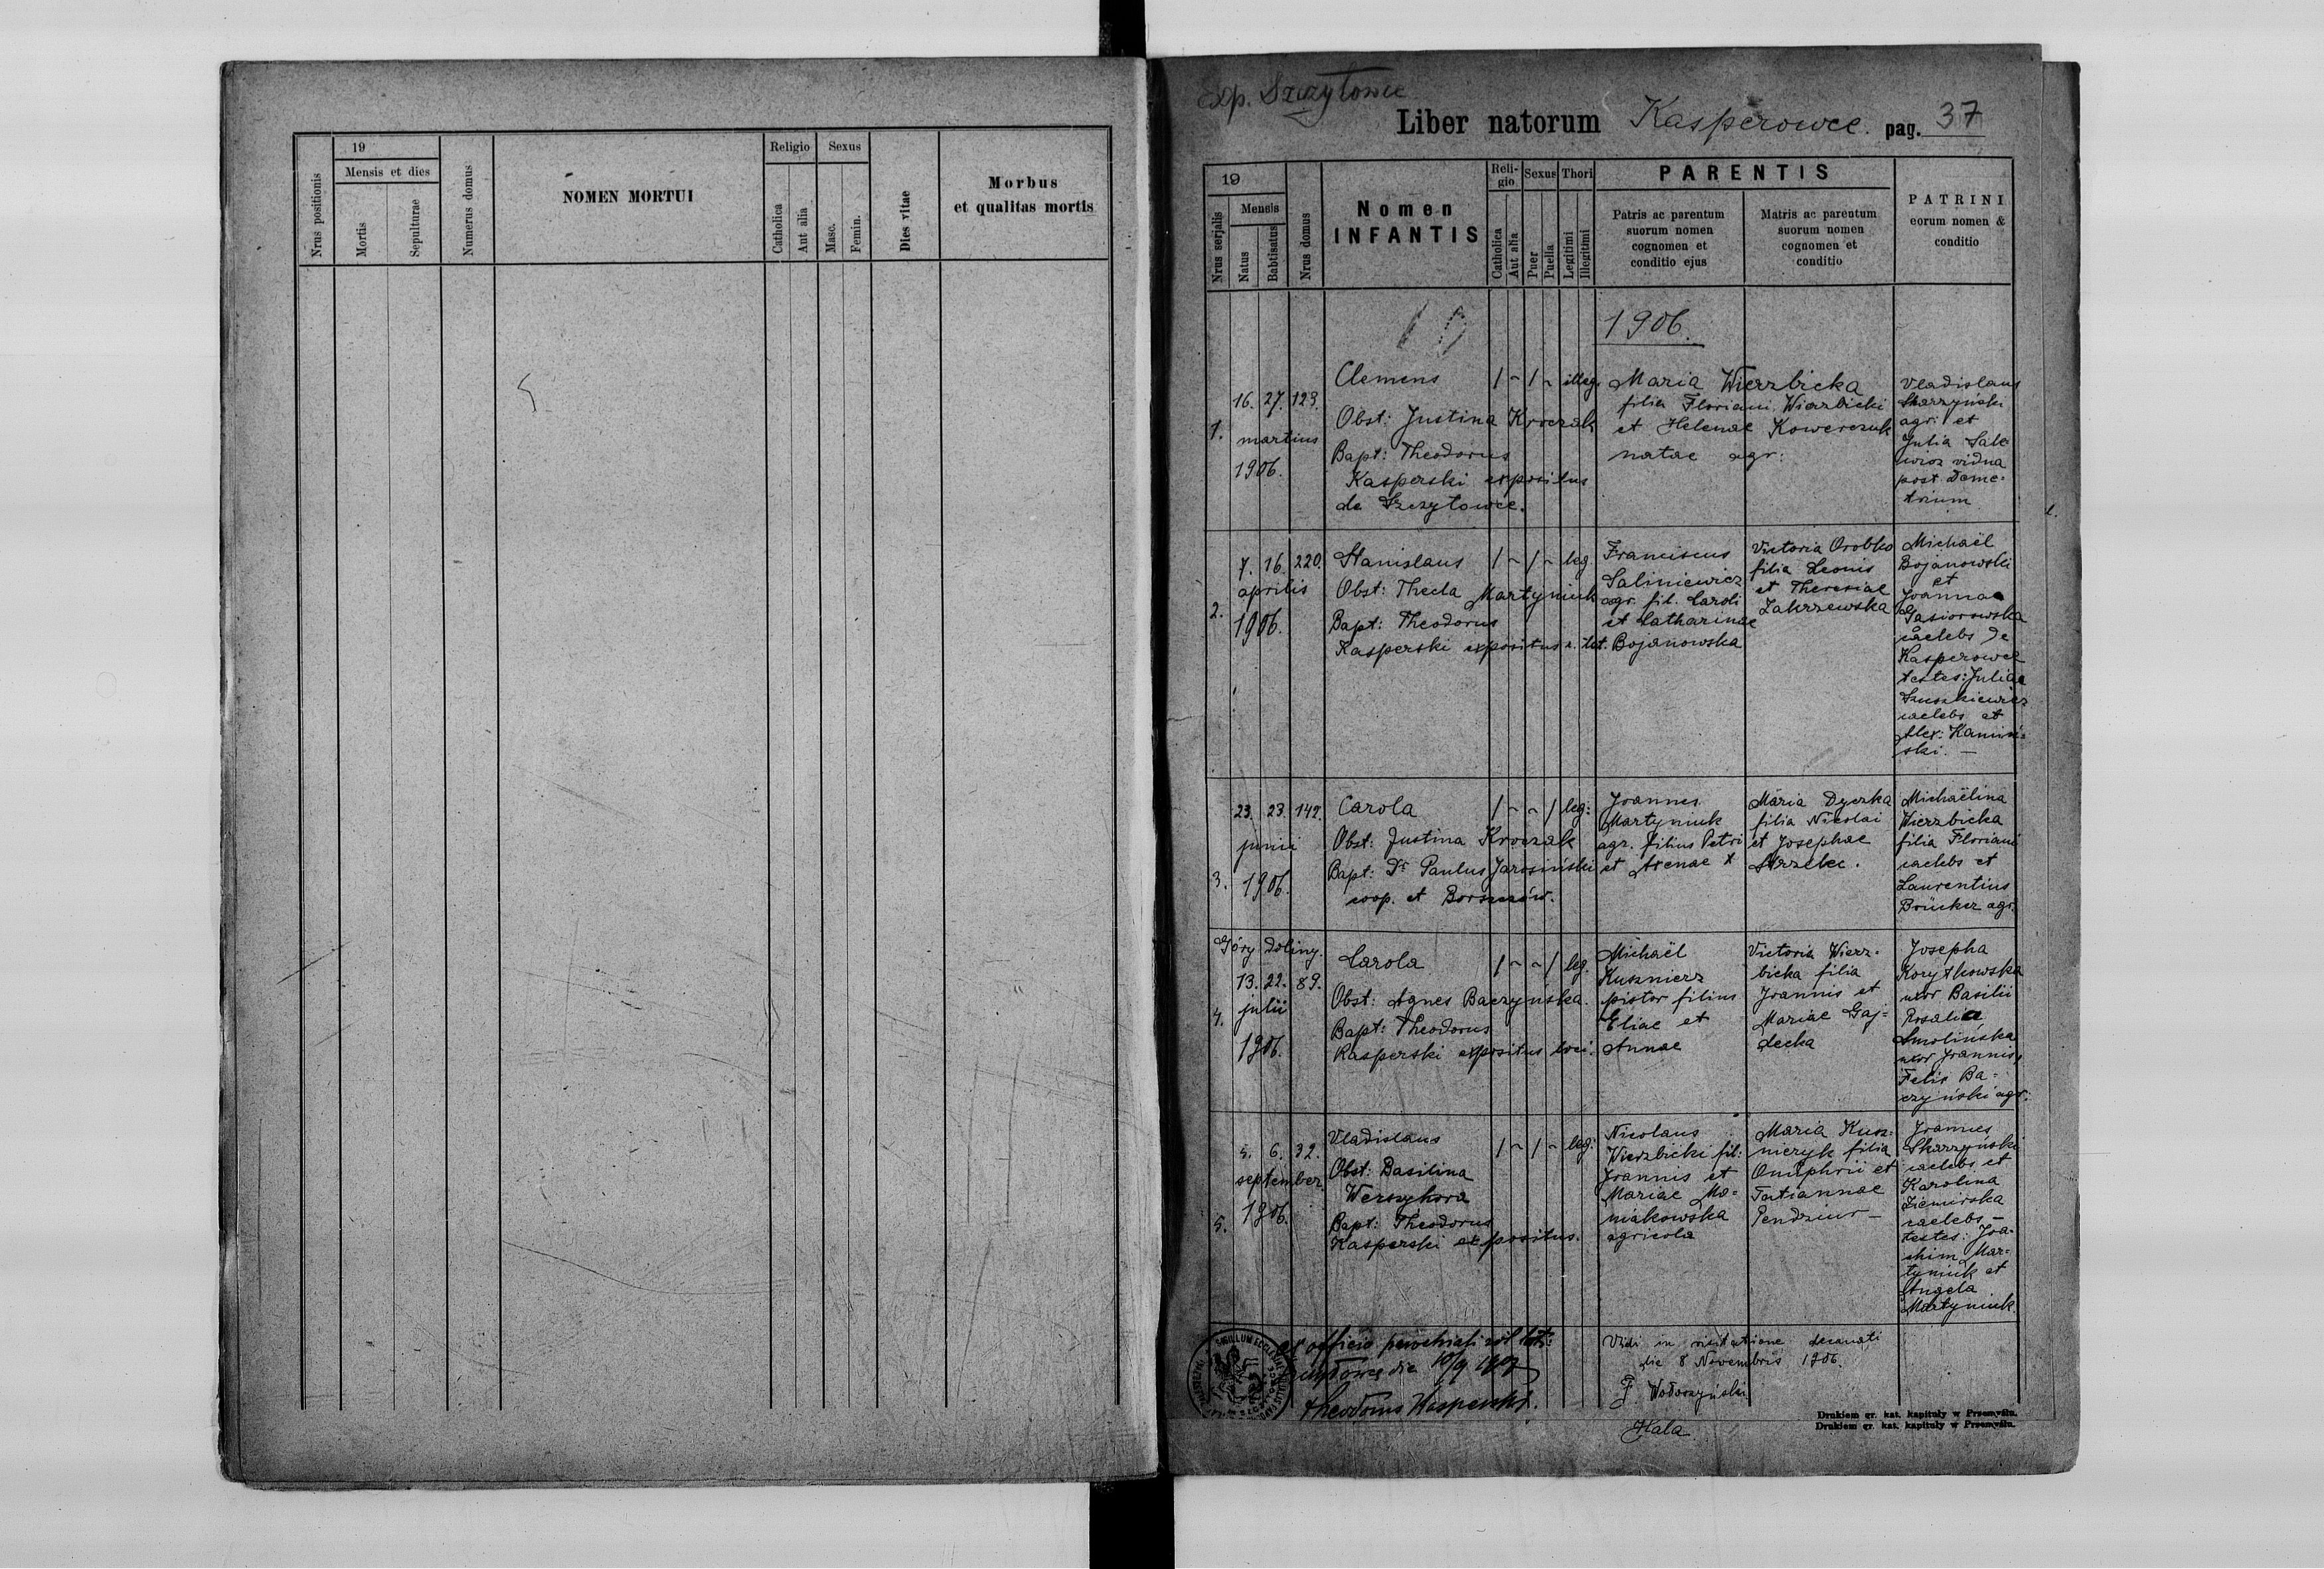 19
Mensis et dies
Nrus positionis
Mortis
Sepulturae
Numerus domus
NOMEN MORTUI
Religio
Catholica
Aut alia
Sexus
Masc.
Femin.
Dies vitae
Morbus
et qualitas mortis
Exp. Szczytowce
Liber natorum Kasperowce. pag. 37
19
Mensis
Nrus serjalis
Natus
Babtisatus
Nrus domus
Nomen
INFANTIS
Reli-
gio
Catholica
Aut alia
Sexus
Puer
Puella
Thori
Legitimi
Illegitimi
PARENTIS
Patris ac parentum
suorum nomen
cognomen et
conditio ejus
Matris ac parentum
suorum nomen
cognomen et
conditio
PATRINI
eorum nomen &
conditio
1906.
1.
16. 27. 123.
martius
1906.
Clemens
Obst: Justina Kroczak
Bapt: Theodorus
Kasperski expositus
de Szczytowce.
1 - 1 - illeg.
Maria Wierzbicka
filia Floriani Wierzbicki
et Helenae Kowerczuk
natae agr:
Vladislaus
Skarzyński
agr: et
Julia Sale
wicz vidua
post Deme-
trium
2.
7. 16. 220.
aprilis
1906.
Stanislaus
Obst: Thecla Martyniuk
Bapt: Theodorus
Kasperski expositus r. lat.
1 - 1 - leg.
Franciscus
Saliniewicz
agr. fil. Caroli
et Catharinae
Bojanowska
Victoria Orobko
filia Leonis
et Theresiae
Zakrzewska
Michaël
Bojanowski
et
Joanna
Gasiorowska
caelebs de
Kasperowce
testes: Julia
Szuszkiewicz
caelebs et
Alex: Kamiń-
ski. -
3.
23. 23. 142.
junii
1906.
Carola
Obst: Justina Kroczak
Bapt: Dr Paulus Jarosiński
coop. et Borszczów.
1 - - 1 leg:
Joannes
Martyniuk
agr. filius Petri
et Irenae
Maria Dyczka
filia Nicolai
et Josephae
Strzelec.
Michaëlina
Wierzbicka
filia Floriani
caelebs et
Laurentius
Brücker agr.
4.
Góry doliny.
13. 22. 89.
julii
1906.
Carola
Obst: Agnes Baczynska.
Bapt: Theodorus
Kasperski expositus loci.
1 - - 1 leg.
Michaël
Kusznierz
pistor filius
Eliae et
Annae
Victoria Wierz-
bicka filia
Joannis et
Mariae Gaj-
decka
Josepha
Korytkowska
uxor Basilii
Rosalia
Smolińska
uxor Joannis,
Felix Ba-
czyński agr.
5.
5. 6. 32.
september.
1906.
Vladislaus
Obst: Basilina
Werszyhora
Bapt: Theodorus
Kasperski expositus.
1 - 1 - leg:
Nicolaus
Wierzbicki fil:
Joannis et
Mariae Ma-
niakowska
agricola
Maria Kusz-
nieryk filia
Onuphrii et
Tatiannae
Pendziur -
Joannes
Skarzyński
caelebs et
Karolina
Ziemirska
caelebs -
testes: Joa-
chim Mar-
tyniuk et
Angela
Martyniuk.
ex officio parochiali rit lat:
die 10/9 1907
Theodorus Kasperski.
Vidi in visitatione decanali
die 8 Novembris 1906.
Hala
Drukiem gr. kat. kapituły w Przemyślu.
Drukiem gr. kat. kapituły w Przemyślu.